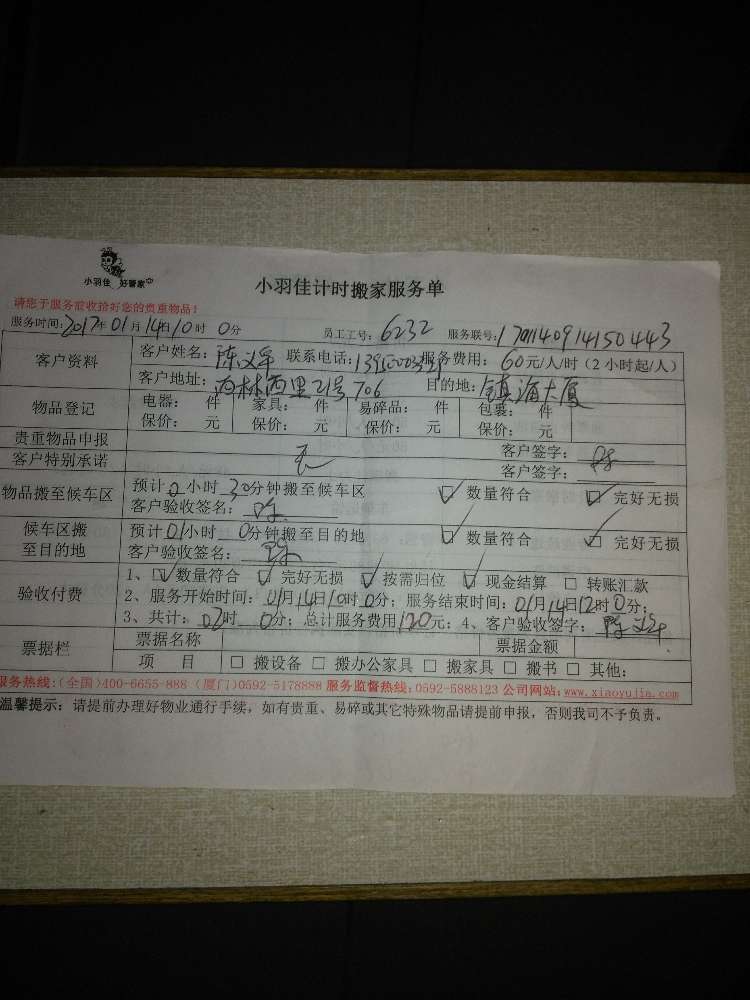 小羽佳 好管家
小羽佳计时搬家服务单
请您于服务前收拾好您的贵重物品！
服务时间：2017年01月14日10时0分 员工工号：6232 服务联号：1701140914150443
客户资料 客户姓名：陈 联系电话： 服务费用：60元/人/时（2小时起/人）
客户地址：西林西里21号706 目的地：镇海大厦
物品登记 电器： 件 家具： 件 易碎品： 件 包裹： 件
保价： 元 保价： 元 保价： 元 保价： 元
贵重物品申报 无 客户签字：陈
客户特别承诺 客户签字：
物品搬至候车区 预计0小时30分钟搬至候车区 数量符合 完好无损
客户验收签名：陈
候车区搬至目的地 预计01小时0分钟搬至目的地 数量符合 完好无损
客户验收签名：陈
验收付费 1、数量符合 完好无损 按需归位 现金结算 转账汇款
2、服务开始时间：01月14日10时0分；服务结束时间：01月14日12时0分；
3、共计：02时0分；总计服务费用120元；4、客户验收签字：陈
票据栏 票据名称 票据金额
项 目 搬设备 搬办公家具 搬家具 搬书 其他：
服务热线：（全国）400-6655-888（厦门）0592-5178888 服务监督热线：0592-5888123 公司网站：www.xiaoyujia.com
温馨提示：请提前办理好物业通行手续，如有贵重、易碎或其它特殊物品请提前申报，否则我司不予负责。